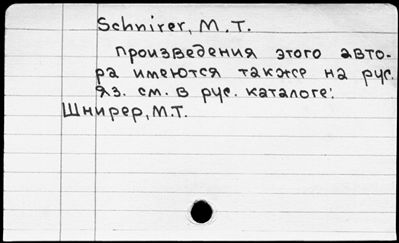 Schnirer, M.T.
произведения этого авто-
ра имеются также на рус.
яз. см. в рус. каталоге:
Шнирер, М.Т.